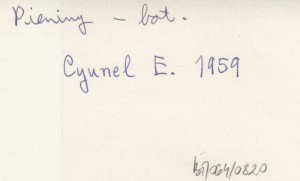 Pieniny - bot.
Cyunel E. 1959
b7/064/0820